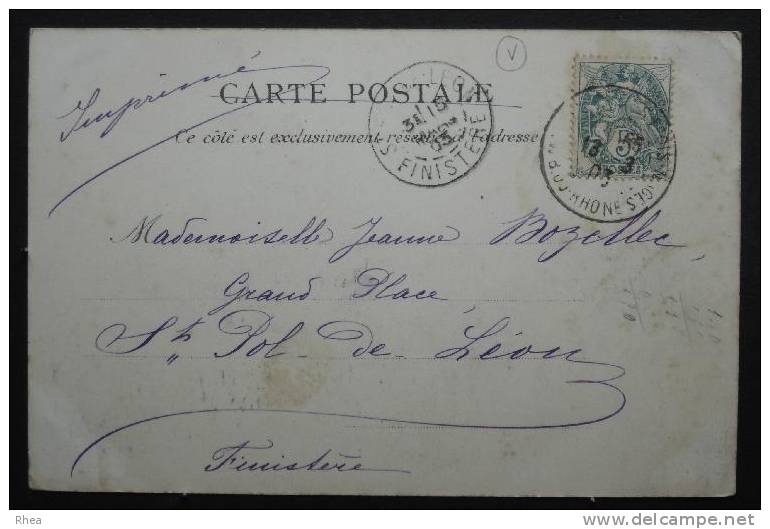 Imprimé
CARTE POSTALE
Ce côté est exclusivement réservé à l'adresse
LÉON
15
MARS
03
FINISTERE
13
3
03
RHONE
Mademoiselle Jeanne Bozellec,
Grand Place,
St. Pol-de-Léon
Finistère
V
Rhea
www.delcampe.net